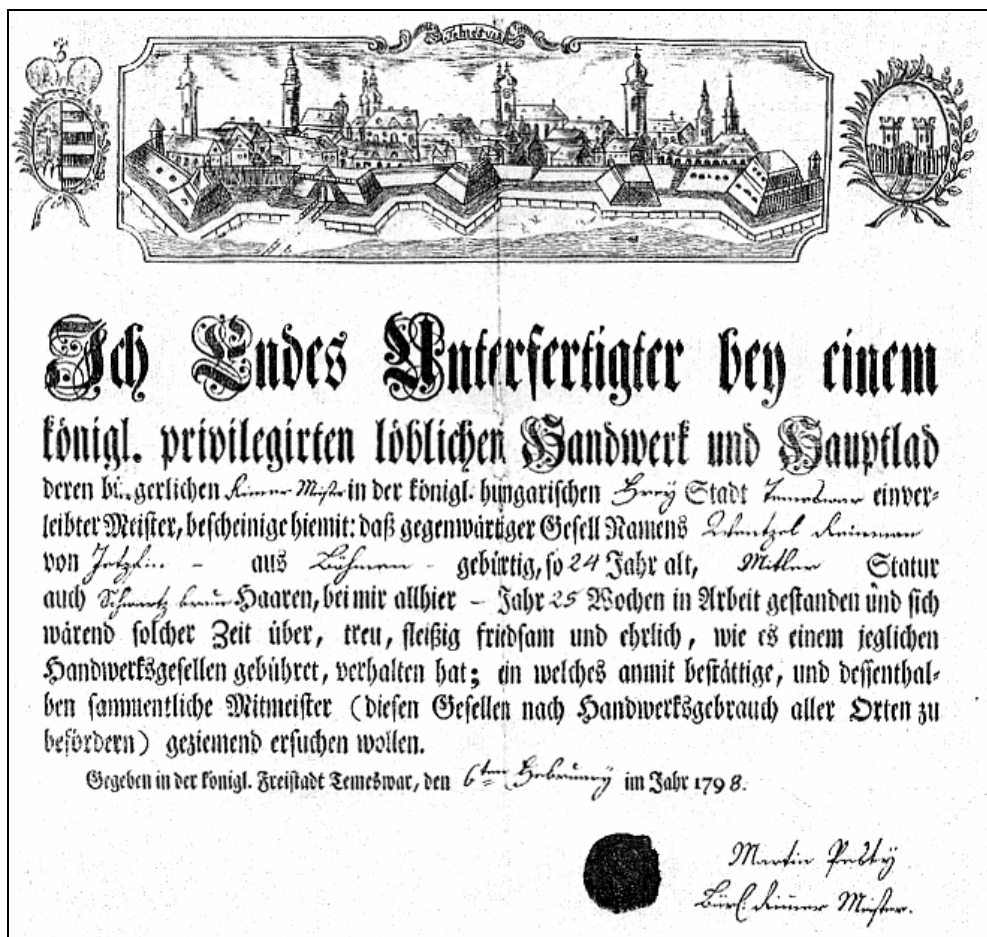 Temesvar
Ich Endes Unterfertigter bey einem
königl. privilegirten löblichen Handwerk und Hauptlad
deren bürgerlichen Riemer Mster in der königl. hungarischen Frey Stadt Temeswar einver-
leibter Meister, bescheinige hiemit: daß gegenwärtiger Gesell Namens Wentzel
von aus Böhmen - gebürtig, so 24 Jahr alt, Mitler Statur
auch Schwartz braun Haaren, bei mir allhier - Jahr 25 Wochen in Arbeit gestanden und sich
wärend solcher Zeit über, treu, fleißig friedsam und ehrlich, wie es einem jeglichen
Handwerksgesellen gebühret, verhalten hat; ein welches anmit bestättige, und dessenthal-
ben sammentliche Mitmeister (diesen Gesellen nach Handwerksgebrauch aller Orten zu
befördern) geziemend ersuchen wollen.
Gegeben in der königl. Freistadt Temeswar, den 6ten Februarÿ im Jahr 1798.
Martin
Bürl. Riemer Meister.